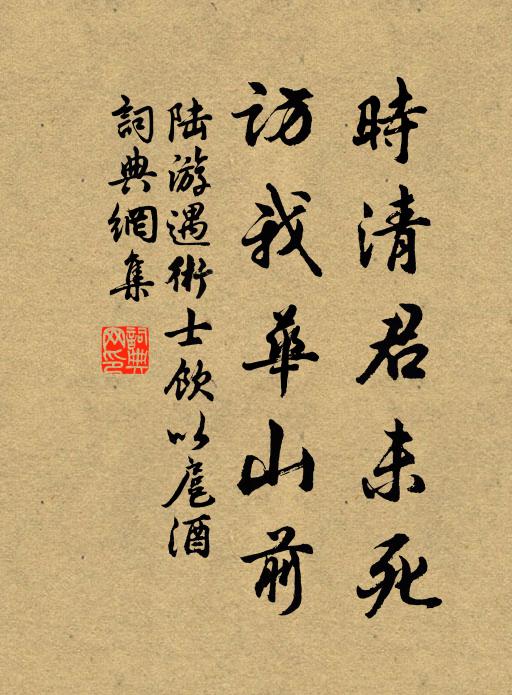 時清君未死
訪我華山前
陆游遇術士飲以巵酒
詞典網集
詞典网印